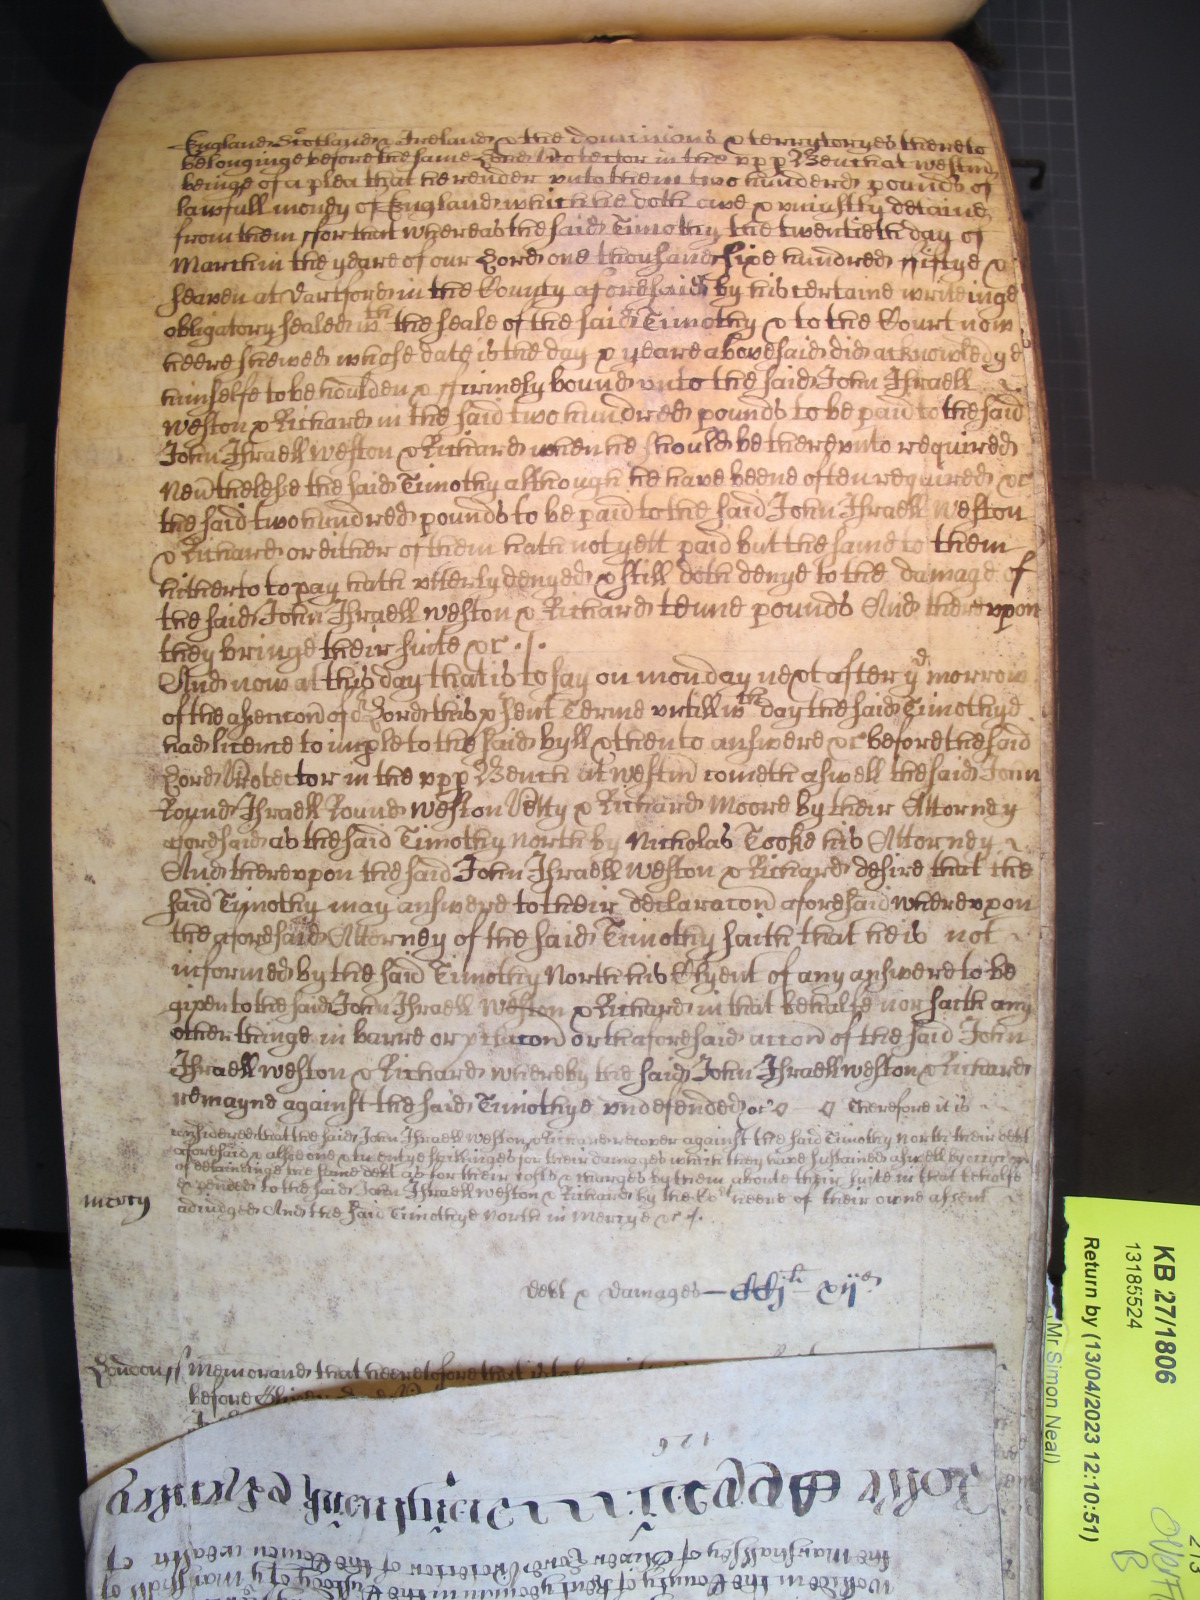 England Scotland & Ireland & the dominions & terrytoryes thereto
belonginge before the same Lord Protector in the upp Bench at Westm
beinge of a plea that he render unto them two hundred pounds of
lawfull money of England which he doth owe & uniustly detaine
from them ffor that whereas the said Timothy the twentieth day of
March in the yeare of our Lord one thousand sixe hundred fiftye &
seaven at Dartford in the County aforesaid by his certaine writeinge
obligatory sealed wth the seale of the said Timothy & to the Court now
heere shewed whose date is the day & yeare abovesaid did acknowledge
himselfe to be houlden & ffirmely bound unto the said John Israell
Weston & Richard in the said two hundred pounds to be paid to the said
John Israell Weston & Richard when he should be thereunto required
Nevthelesse the said Timothy although he have beene often required &c
the said two hundred pounds to be paid to the said John Israell Weston
& Richard or either of them hath not yett paid but the same to them
hitherto to pay hath utterly denyed & still doth denye to the damage of
the said John Israell Weston & Richard tenne pounds And thereupon
they bringe their suite &c
And now at this day that is to say on monday next after ye morrow
of the asencon of Lord this psent Terme untill wch day the said Timothye
had licence to imple to the said byll & then to answere &c before the said
Lord Protector in the upp Bench at Westm cometh aswell the said John
Round Israell Round Weston & Richard Moore by their Attorney
aforesaid as the said Timothy North by Nicholas Cooke his Attorney
And thereupon the said John Israell Weston & Richard desire that the
said Timothy may answere to their declaracon aforesaid whereupon
the aforesaid Attorney of the said Timothy saith that he is not
informed by the said Timothy North his Clyent of any answere to be
given to the said John Israell Weston & Richard in that behalfe nor saith any
other thinge in barre or of the said John
Israell Weston & Richard whereby the said John Israell Weston & Richard
remayne against the said Timothye undefended &c Therefore it is
considered that the said John Israell Weston & Richard recover against the said Timothy North their debt
aforesaid & alsoe one & twentye shillinges for their damages which they have susteined aswell by occasion
of detaininge the same debt as for their costs & charges by them about their suite in that behalfe
expended to the said John Israell Weston & Richard by the Court heere of their owne assent
mercy
adiudged And the said Timothye North in Mercye &c
debt & damages
London ss Memorand that heeretofore that is to
before Oliver
126
John
the Marshallsey of Oliver Lord Protector of the Comon wealth of
in the County of in the Custody of ye Marshall of
KB 27/1806
13185524
Return by (13/04/2023 12:10:51)
Mr Simon Neal)